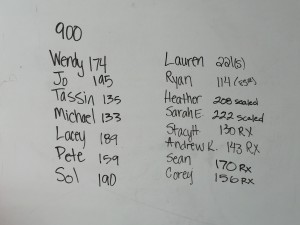 900
Wendy 174
Jo 195
Tassin 135
Michael 133
Lacey 189
Pete 159
Sol 190
Lauren 221(s)
Ryan 114
Heather 208 scaled
Sarah E. 222 scaled
Stacy H 130 RX
Andrew K. 143 RX
Sean 170 RX
Corey 156 RX